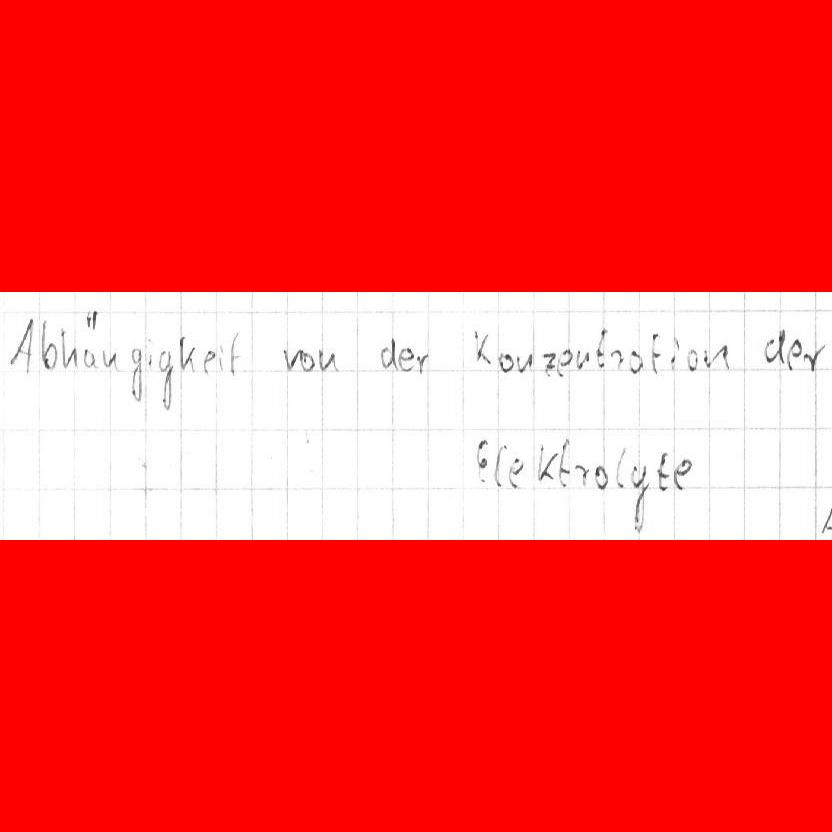 Abhängigkeit von der Konzentration der
Elektrolyte